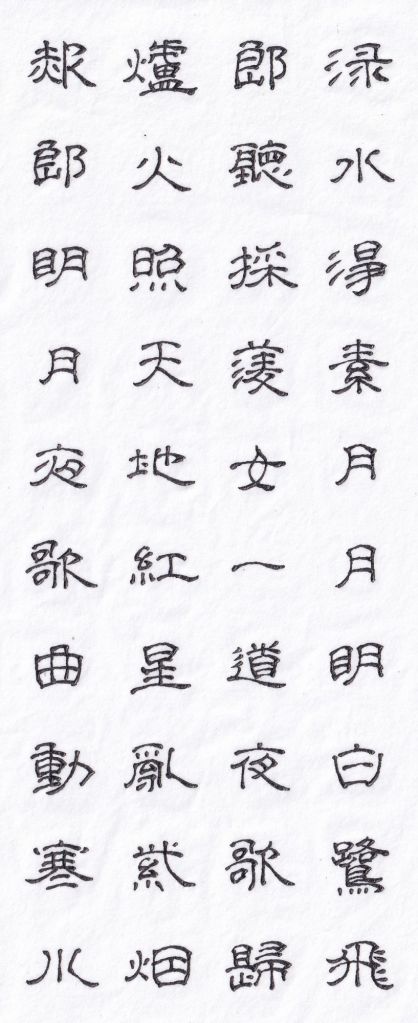 渌水淨素月月明白鷺飛
郎聽採蔆女一道夜歌歸
爐火照天地紅星亂紫烟
赧郎明月夜歌曲動寒川